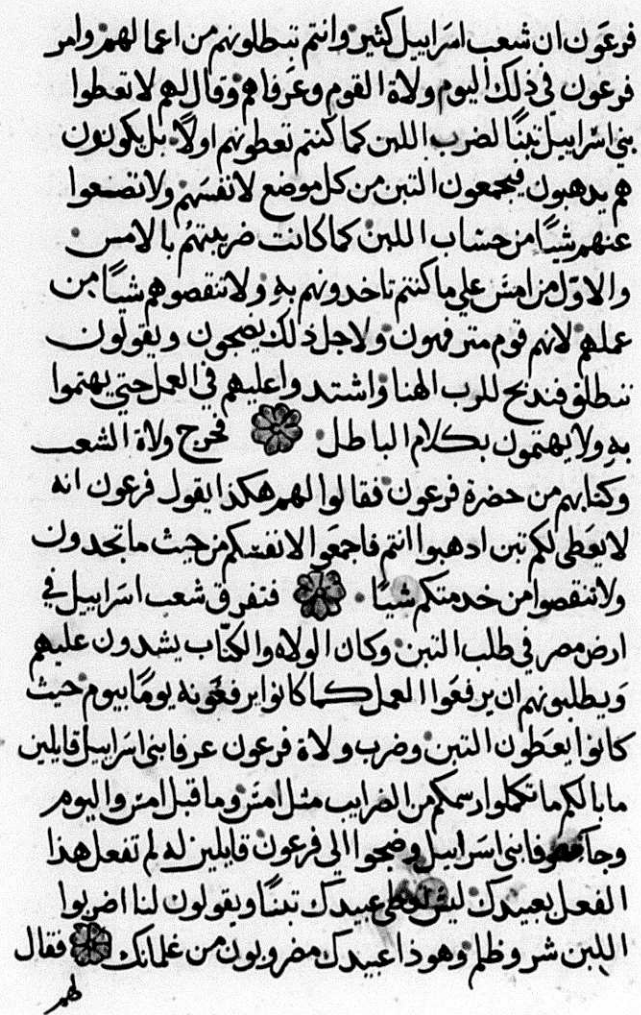 فرعون ان شعب اسراييل كثير وانتم تبطلونهم من اعمالهم وامر
فرعون في ذلك اليوم ولاة القوم وعرفاهم وقال لهم لا تعطوا
بني اسراييل تبنًا لضرب اللبن كما كنتم تعطونهم اولًا بل يكونون
هم يدهبون فيجمعون التبن من كل موضع لانفسهم ولا تضعوا
عنهم شيًا من حساب اللبن كما كانت ضريبتهم بالامس
والاوّل من امس علي ما كنتم تاخدونهم به ولا تنقصوهم شيًا من
عملهم لانهم قوم مترفهون ولاجل ذلك يضجون ويقولون
ننطلق فندبح للرب الهنا واشتدوا عليهم في العمل حتي يهتموا
به ولا يهتمون بكلام الباطل فخرج ولاة الشعب
وكتابهم من حضرة فرعون فقالوا لهم هكذا يقول فرعون انه
لا يعطي لكم تبن ادهبوا انتم فاجمعوا لانفسكم من حيث ما تجدون
ولا تنقصوا من خدمتكم شيًا فتفرق شعب اسراييل في
ارض مصر في طلب التبن وكان الولاه والكتّاب يشدون عليهم
ويطلبونهم ان يرفعوا العمل كما كانوا يرفعونه يومًا بيوم حيث
كانوا يعطون التبن وضرب ولاة فرعون عرفا بني اسراييل قايلين
ما بالكم ما تكملوا رسمكم من الضرايب مثل امس وما قبل امس واليوم
وجا عرفا بني اسراييل وضجوا الي فرعون قايلين له لم تفعل هذا
الفعل بعبيدك ليس تعطي عبيدك تبنًا ويقولون لنا اضربوا
اللبن شر وظلم وهوذا عبيدك مضروبون من غلمانك فقال
لهم